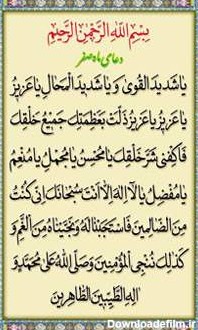 بِسْمِ اللهِ الرَّحْمٰنِ الرَّحِيْمِ
دعای ماه صفر
يَا شَدِيدَ الْقُوىٰ وَيَا شَدِيدَ الْمَحَالِ يَا عَزِيزُ
يَا عَزِيزُ يَا عَزِيزُ ذَلَّتْ بِعَظَمَتِكَ جَمِيعُ خَلْقِكَ
فَاكْفِنِى شَرَّ خَلْقِكَ يَا مُحْسِنُ يَا مُجْمِلُ يَا مُنْعِمُ
يَا مُفْضِلُ يَا لَا اِلٰهَ اِلَّا اَنْتَ سُبْحَانَكَ اِنِّى كُنْتُ
مِنَ الظَّالِمِينَ فَاسْتَجَبْنَا لَهُ وَنَجَّيْنَاهُ مِنَ الْغَمِّ وَ
كَذٰلِكَ نُنْجِى الْمُؤْمِنِينَ وَصَلَّى اللهُ عَلىٰ مُحَمَّدٍ وَ
اٰلِهِ الطَّيِّبِينَ الطَّاهِرِينَ
Downloadefilm.ir